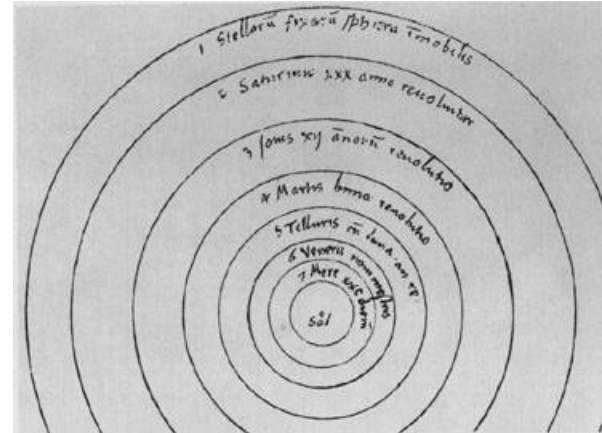 1 Stellarū fixarū sphæra īmobilis
2 Saturnus xxx anno revolvitur
3 Jovis xij ānorū revolutio
4 Martis bima revolutio
5 Telluris cū luna an re
6 Veneris nonimestris
7 Merc xxc dierū
Sol